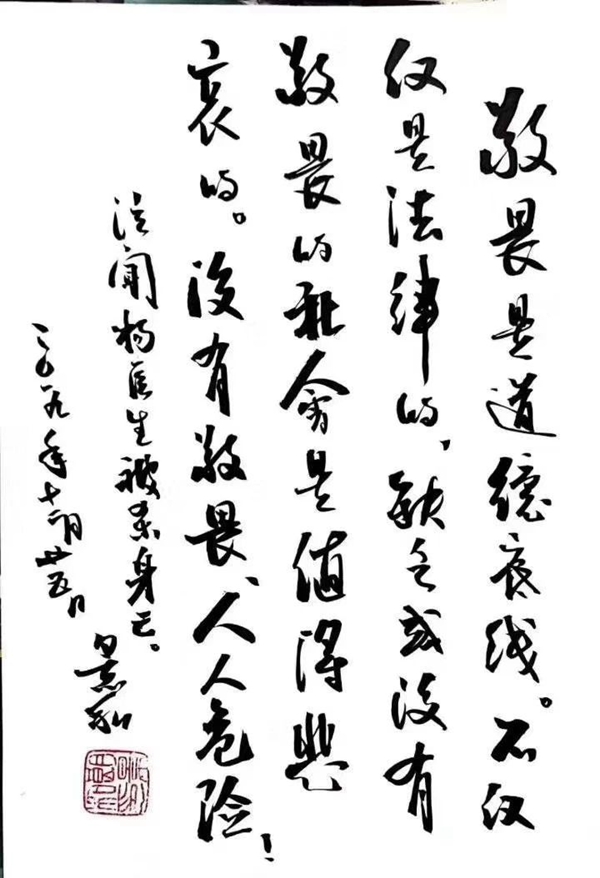 敬畏是道德底线。不仅
仅是法律的,缺乏或没有
敬畏的社会是值得悲
哀的。没有敬畏、人人危险!
注闻杨医生被杀身亡。
二〇一九年十二月廿五日
景和